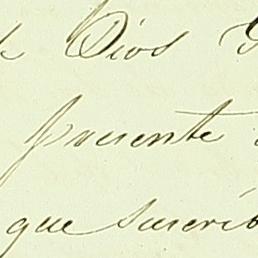 Dios
presente
que suscrib